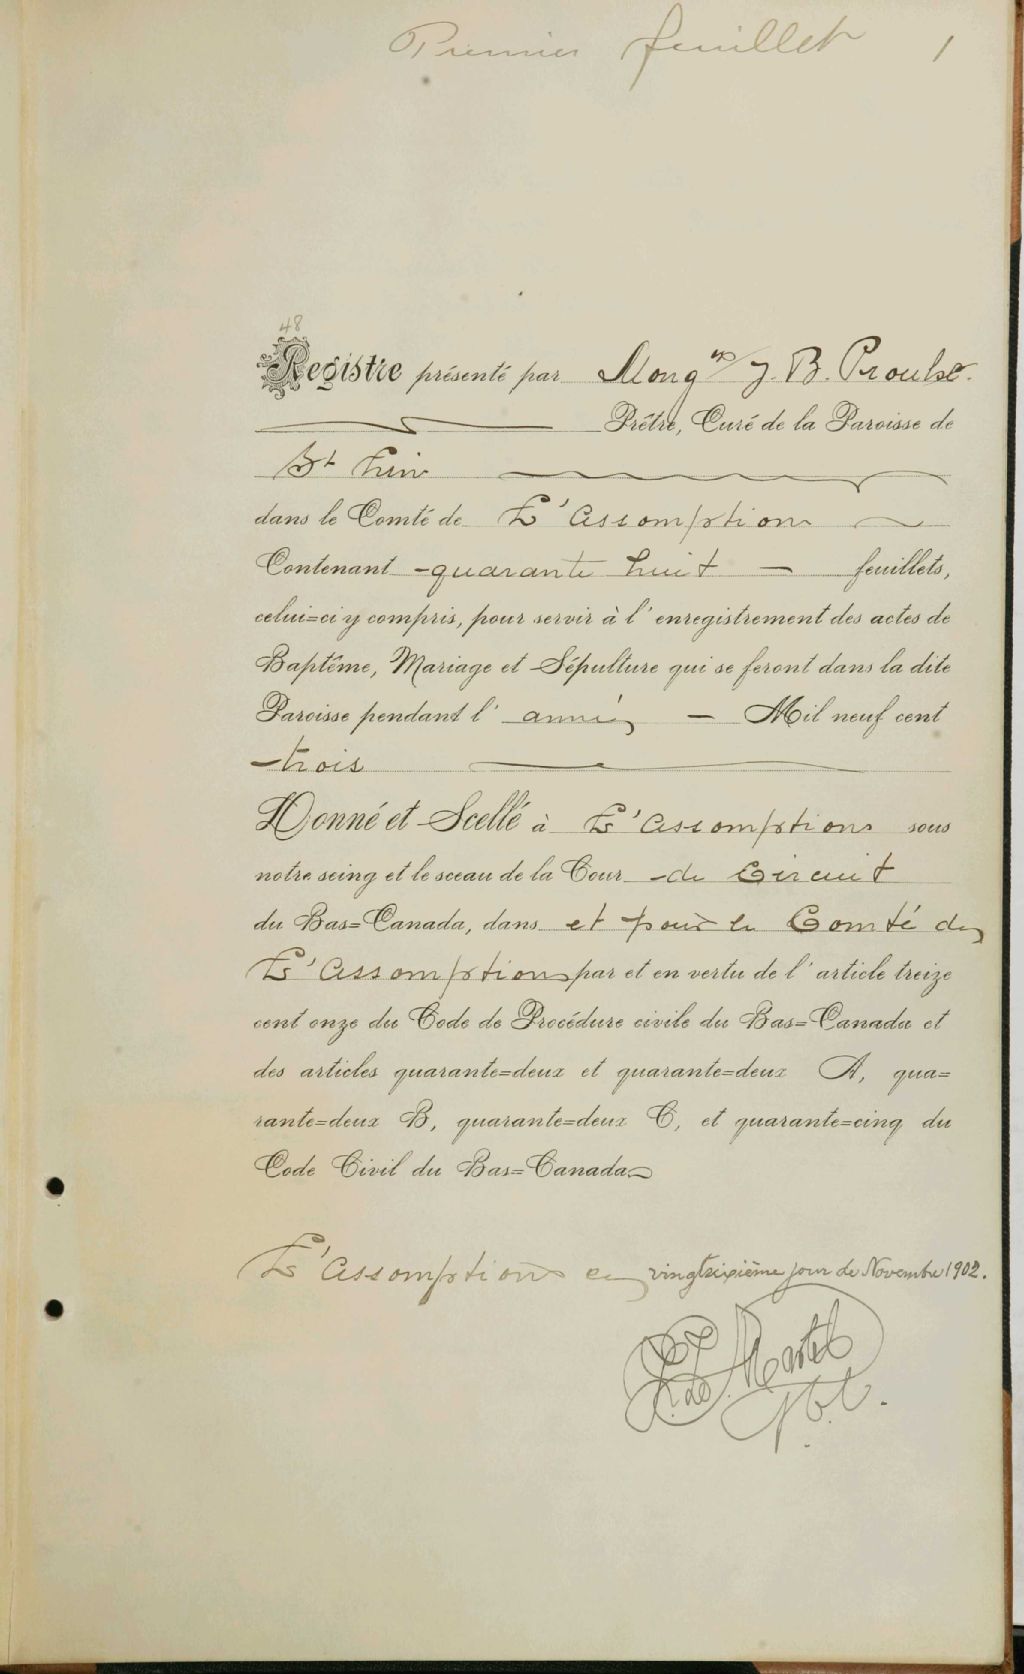 Premier feuillet 1
48
Registre présenté par Mongr J. B. Proulx.
Prêtre, Curé de la Paroisse de
St Lin
dans le Comté de L'Assomption
Contenant quarante huit feuillets,
celui=ci y compris, pour servir à l'enregistrement des actes de
Baptême, Mariage et Sépulture qui se feront dans la dite
Paroisse pendant l'année Mil neuf cent
trois
Donné et Scellé à L'Assomption sous
notre seing et le sceau de la Cour de Circuit
du Bas=Canada, dans et pour le Comté de
L'Assomption par et en vertu de l'article treize
cent onze du Code de Procédure civile du Bas=Canada et
des articles quarante=deux et quarante=deux A, qua=
rante=deux B, quarante=deux C, et quarante=cinq du
Code Civil du Bas=Canada
L'Assomption ce vingtsixième jour de Novembre 1902.
Martel